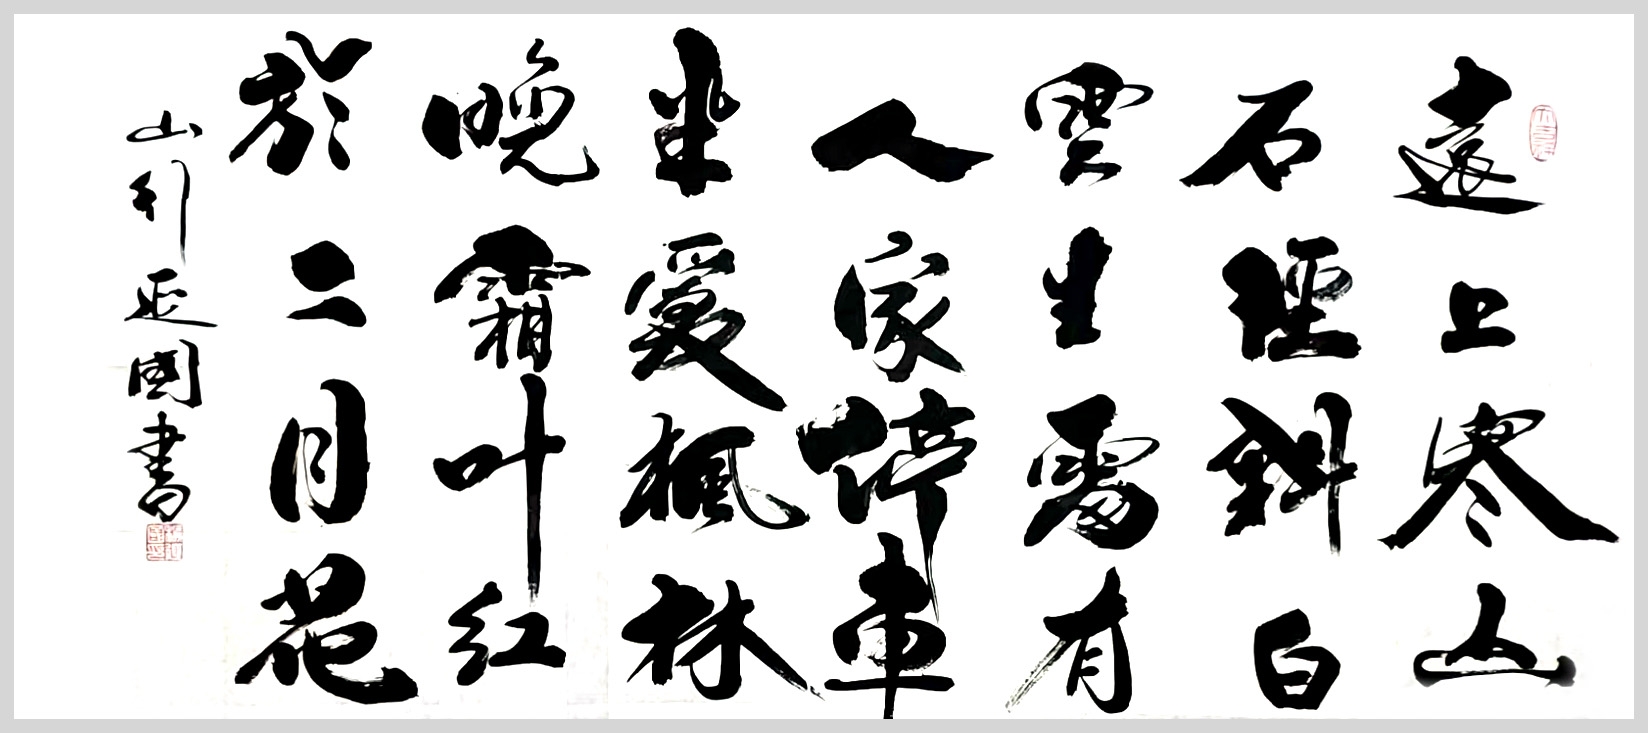 遠上寒山
石徑斜白
雲生處有
人家停車
坐愛楓林
晚霜叶红
於二月花
山行延國書